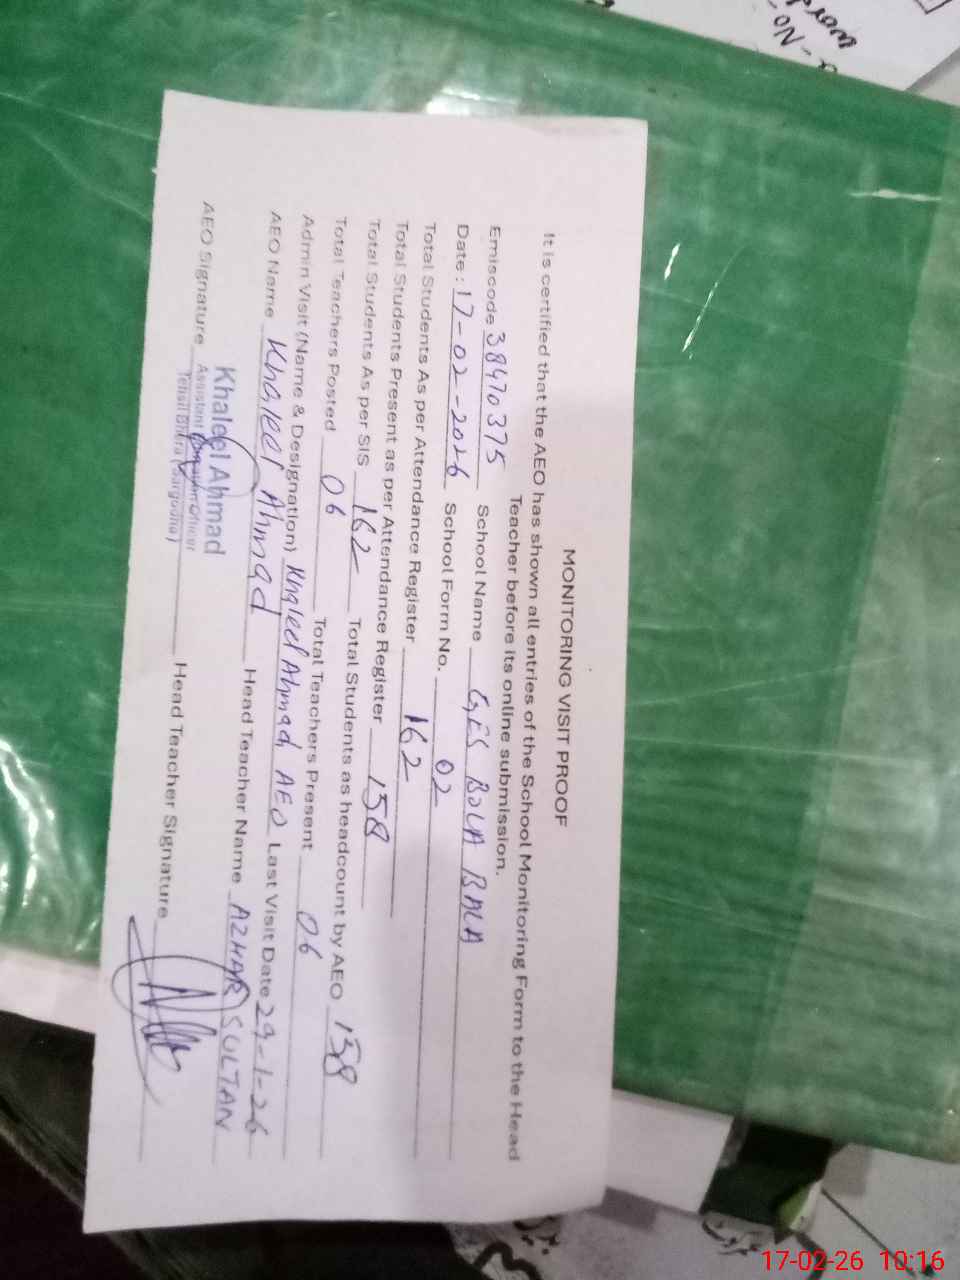 MONITORING VISIT PROOF
It is certified that the AEO has shown all entries of the School Monitoring Form to the Head
Teacher before its online submission.
Emiscode 38470375 School Name GES BOLA BALA
Date: 17-02-2026 School Form No. 02
Total Students As per Attendance Register 162
Total Students Present as per Attendance Register 158
Total Students As per SIS 162 Total Students as headcount by AEO 158
Total Teachers Posted 06 Total Teachers Present 06
Admin Visit (Name & Designation) Khaleel Ahmad, AEO Last Visit Date 29-1-26
AEO Name Khaleel Ahmad Head Teacher Name AZHAR SULTAN
AEO Signature Head Teacher Signature
Khaleel Ahmad
Assistant Education Officer
Tehsil Bhera (Sargodha)
17-02-26 10:16